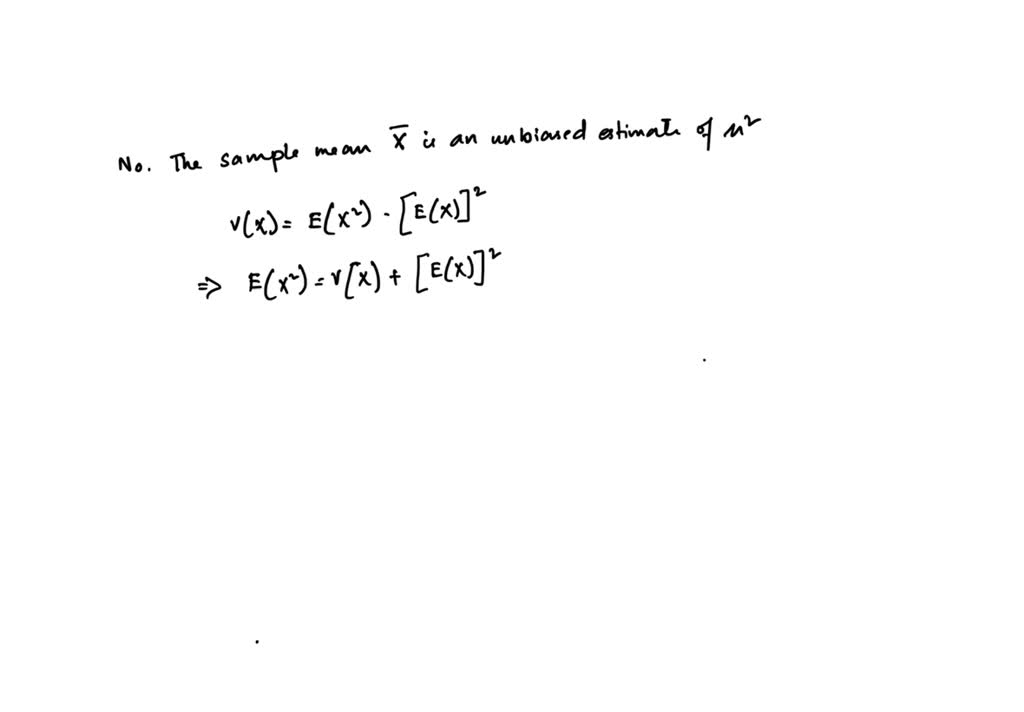 No. The sample mean X̅ is an unbiased estimate of μ²
V(X) = E(X²) - [E(X)]²
⇒ E(X²) = V[X) + [E(X)]²